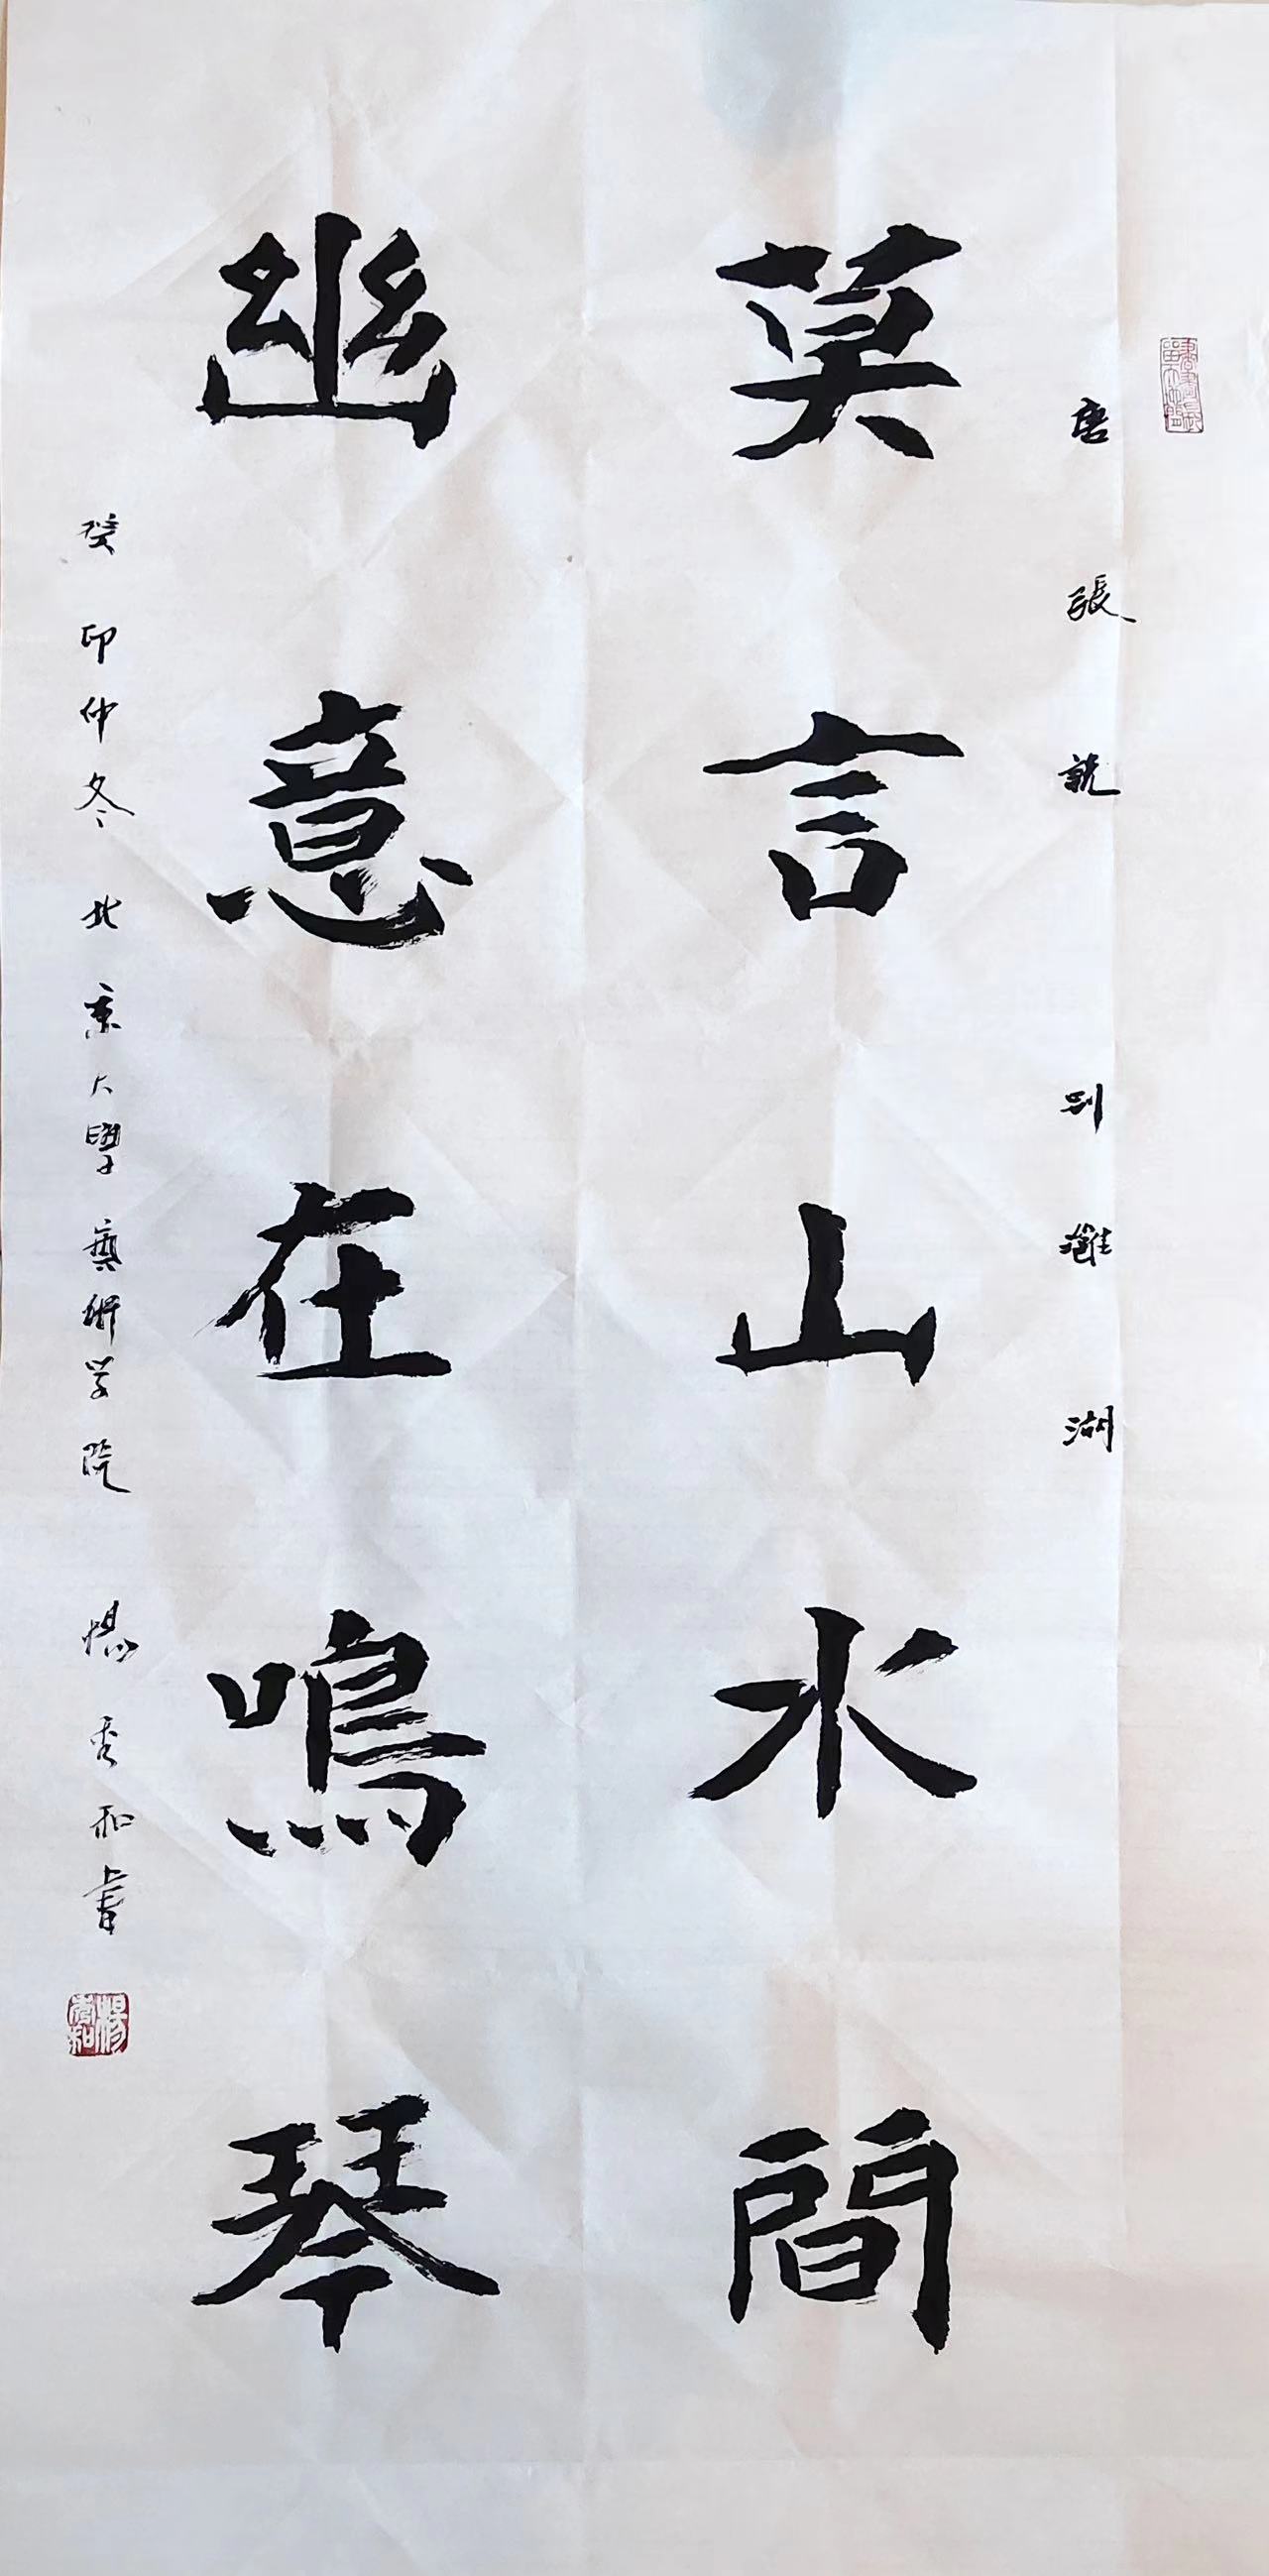 唐張說 別灉湖
莫言山水間
幽意在鳴琴
癸卯仲冬 北京大學藝術学院 楊秀和書